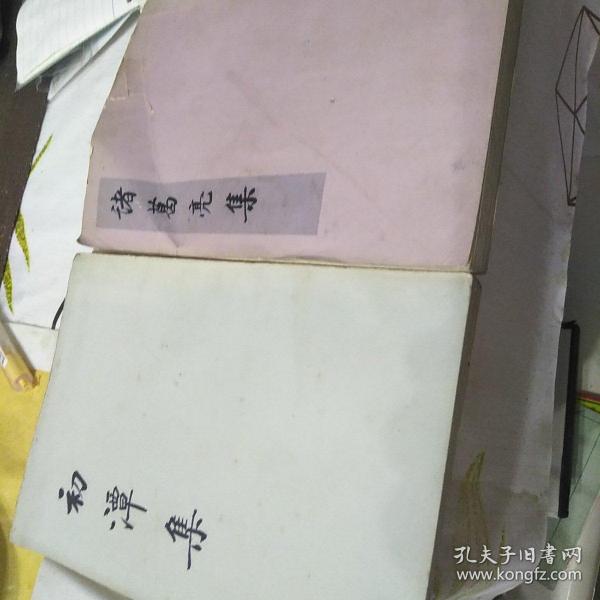 诸葛亮集
初潭集
孔夫子旧書网
www.kongfz.com